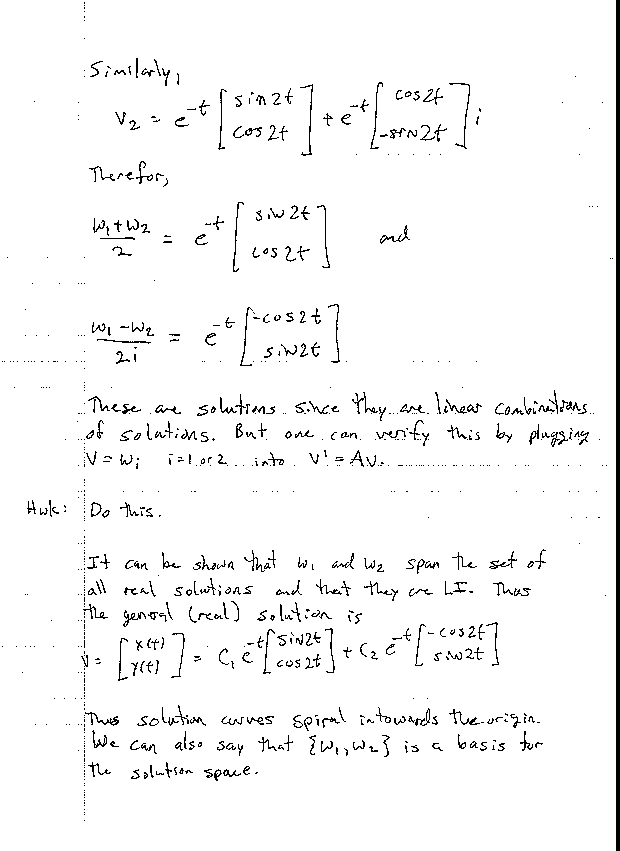 Similarly,
V₂ = e^{-t} [ sin 2t ; cos 2t ] + e^{-t} [ cos 2t ; -sin 2t ] i
Therefor,
(w₁ + w₂)/2 = e^{-t} [ sin 2t ; cos 2t ] and
(w₁ - w₂)/2i = e^{-t} [ -cos 2t ; sin 2t ]
These are solutions since they are linear combinations
of solutions. But one can verify this by plugging
V = wᵢ i = 1 or 2 into V' = AV.
Hwk: Do this.
It can be shown that w₁ and w₂ span the set of
all real solutions and that they are LI. Thus
the general (real) solution is
V = [ x(t) ; y(t) ] = C₁ e^{-t} [ sin 2t ; cos 2t ] + C₂ e^{-t} [ -cos 2t ; sin 2t ]
Thus solution curves spiral in towards the origin.
We can also say that {w₁, w₂} is a basis for
the solution space.